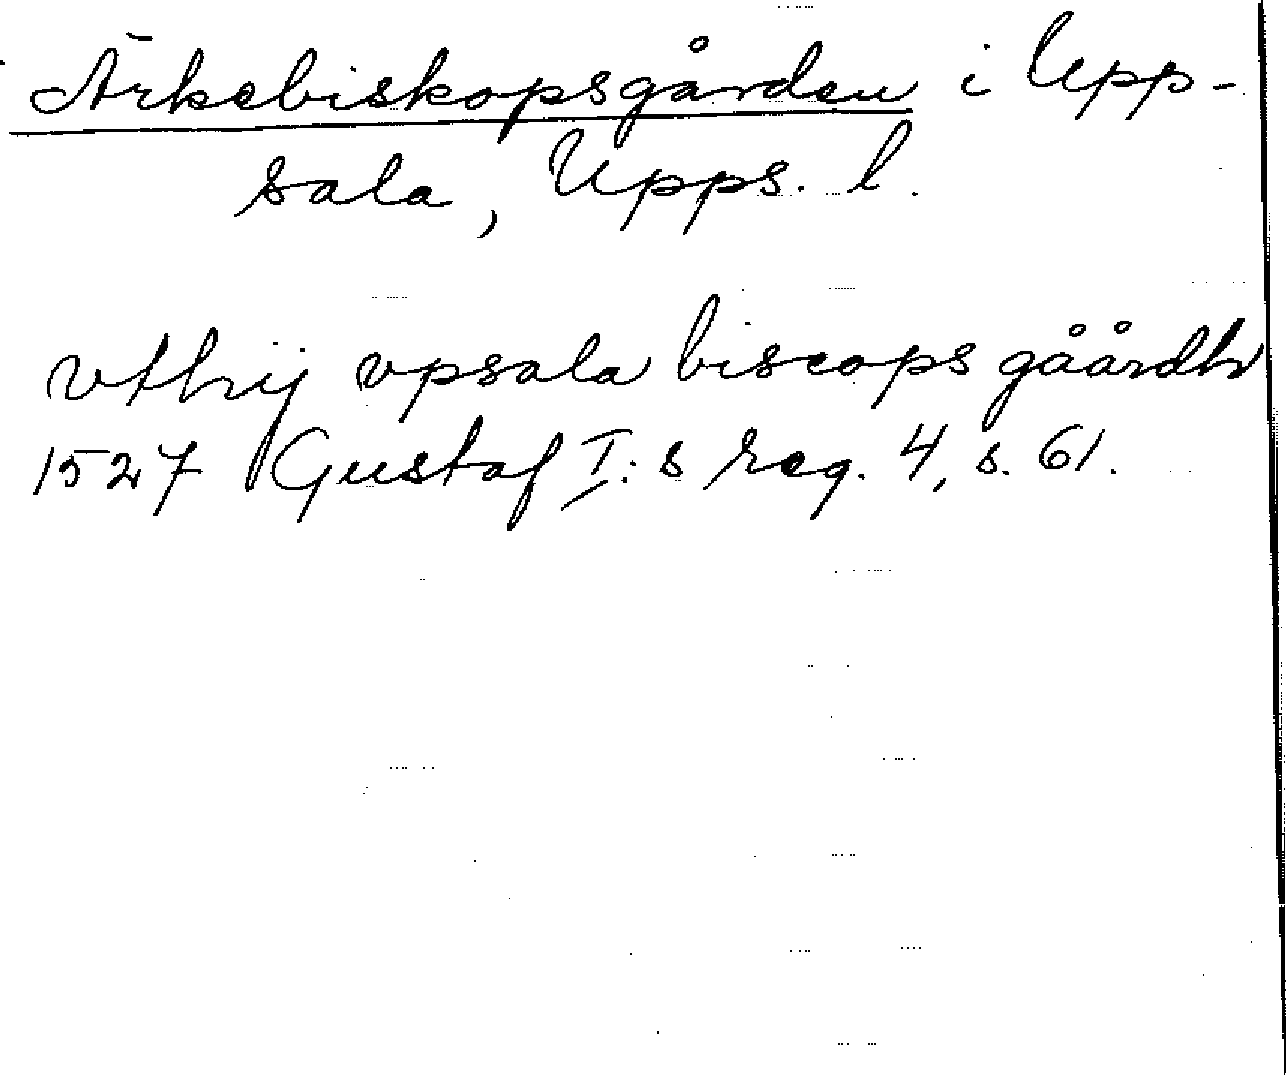 Ärkebiskopsgården i Upp-
sala, Upps. l.
vthij vpsala biscops gåårdh
1527 Gustaf I:s reg. 4, s. 61.